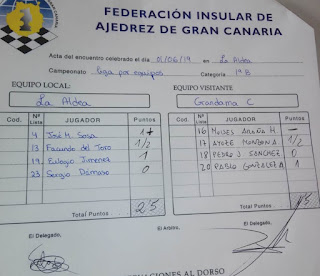 FEDERACIÓN INSULAR DE
AJEDREZ DE GRAN CANARIA
Acta del encuentro celebrado el día 01/06/19 en La Aldea
Campeonato Liga por equipos Categoría 1ªB
EQUIPO LOCAL: EQUIPO VISITANTE
La Aldea Grandama C
Cod. Nº Lista JUGADOR Puntos Cod. Nº Lista JUGADOR Puntos
4 José M. Sosa 1+ 16 MOISES ARAÑA M. —
13 Facundo del Toro 1/2 17 AYOZE MONZON A. 1/2
19 Eulogio Jimenez 1 18 PEDRO J. SANCHEZ 0
23 Sergio Dámaso 0 20 PABLO GONZALEZ A 1
Total Puntos 2'5 Total Puntos 1'5
El Delegado, El Arbitro, El Delegado,
AL DORSO